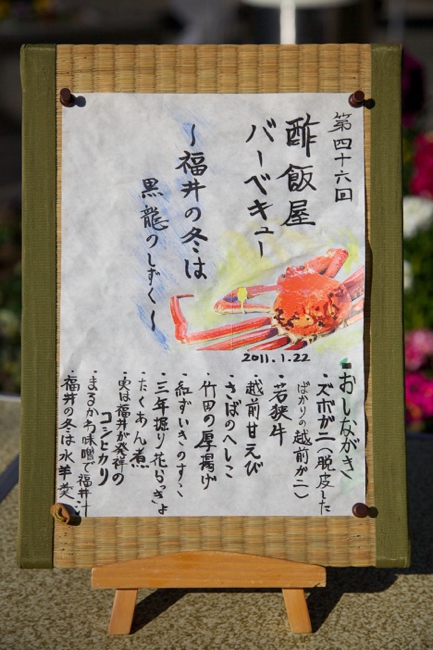 第四十六回
酢飯屋
バーベキュー
～福井の冬は
黒龍のしずく～
2011.1.22
おしながき
・ズボガニ(脱皮した
ばかりの越前がニ)
・若狭牛
・越前甘えび
・さばのへしこ
・竹田の厚揚げ
・紅ずいきのすこ
・三年掘り花らっきょ
・たくあん煮
・実は福井が発祥の
コシヒカリ
・まるかわ味噌で福井汁
・福井の冬は水羊羹